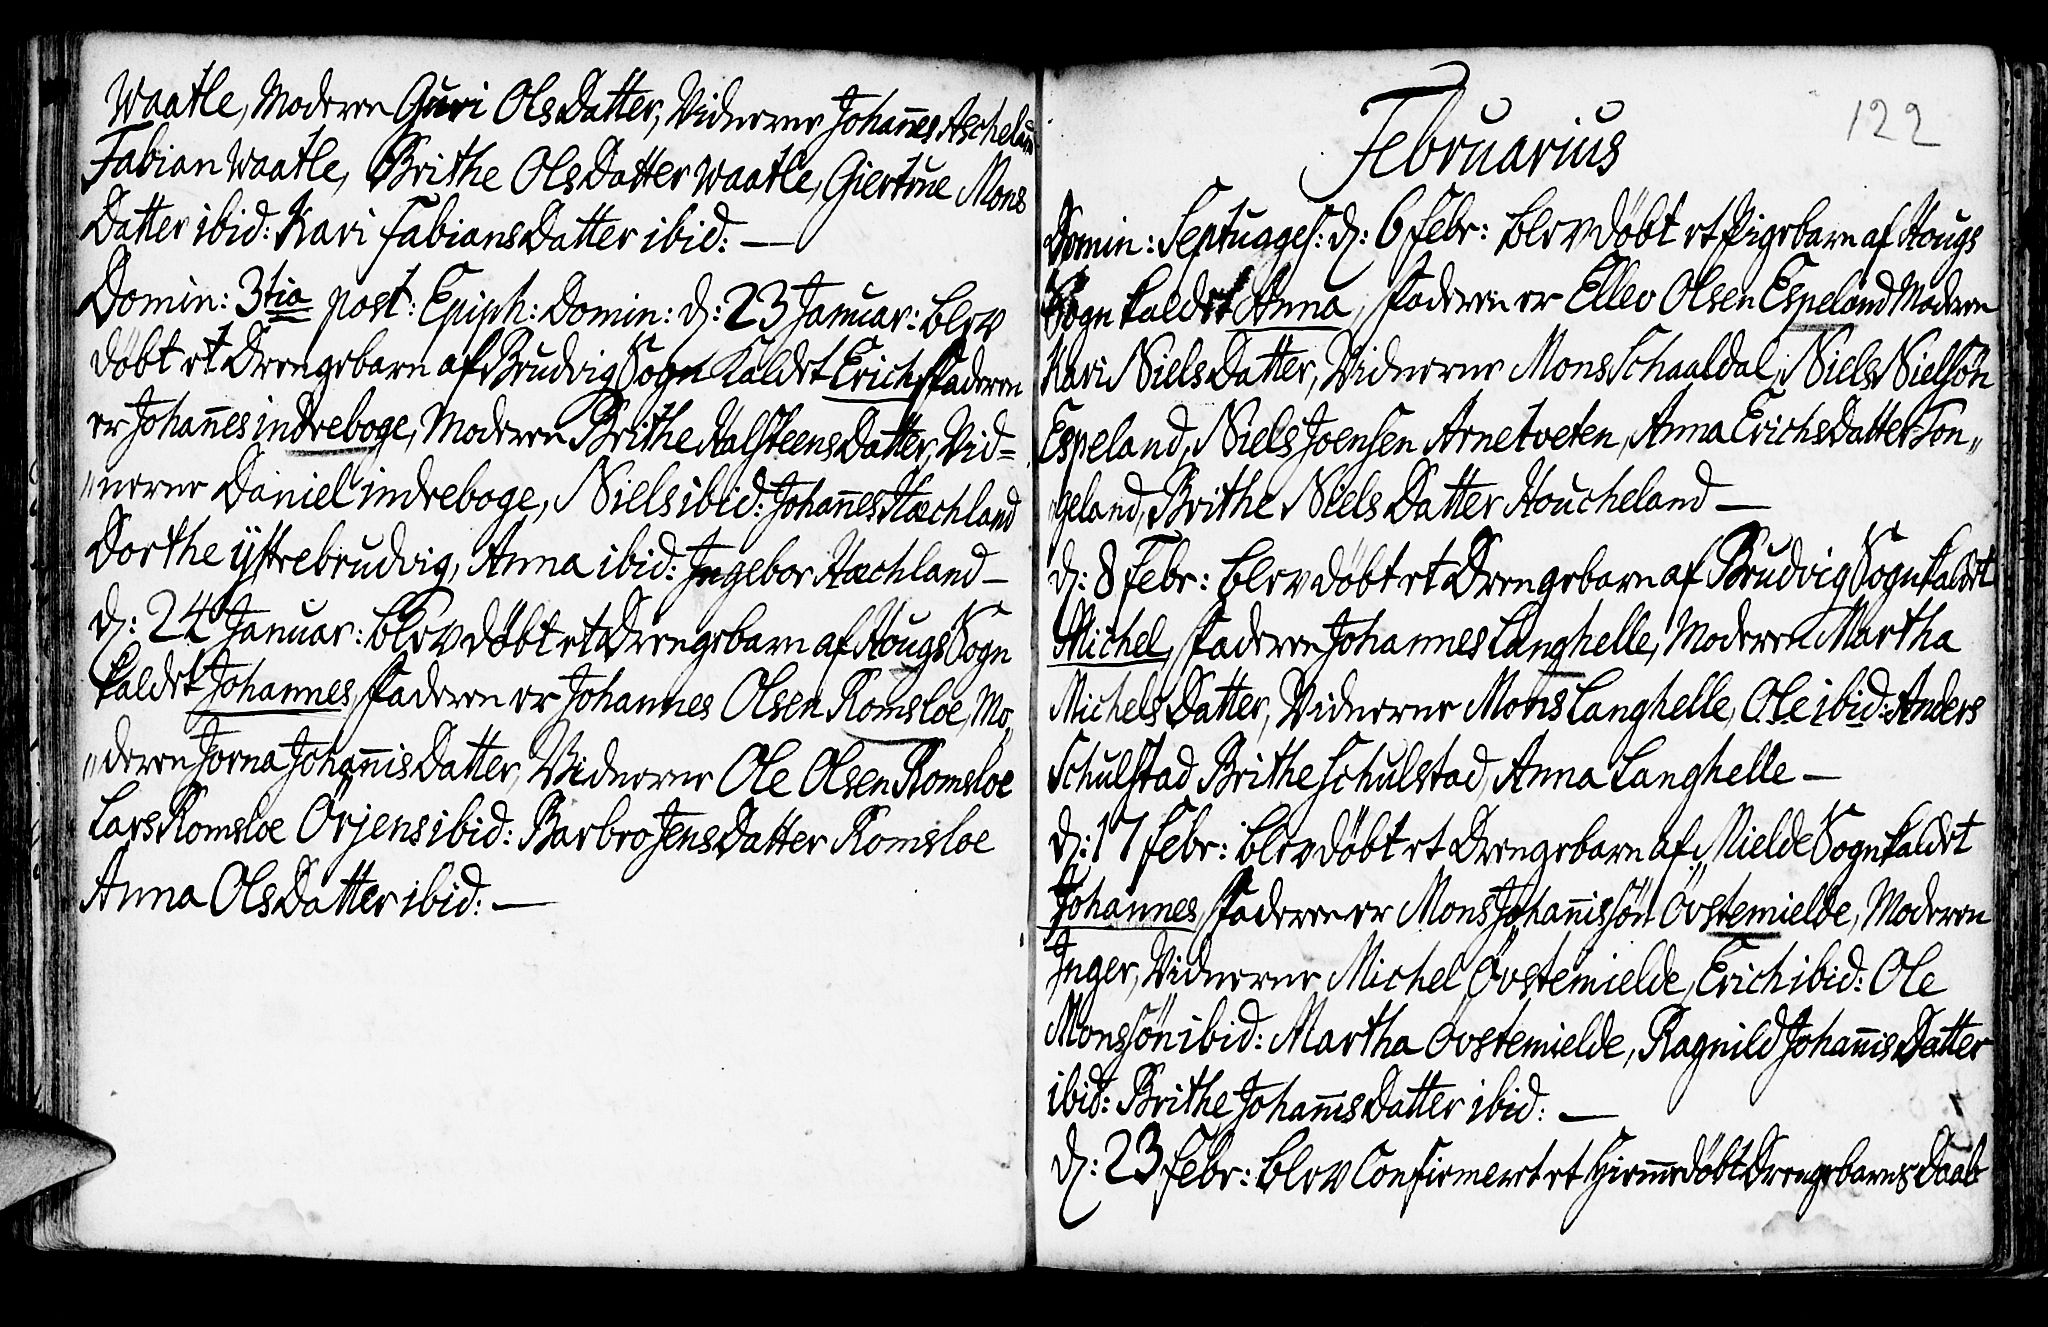 Waatle, Moderen Guri Ols Datter, Vidnerne Johan̄es Ascheland
Fabian Waatle, Brithe Ols Datter Waatle, Giertrue Mons
Datter ibid: Kari Fabians Datter ibid: —
Domin: 3tia post: Epiph: Domin: d: 23 Januar: blev
döbt et Drengebarn af Brudvig Sogn kaldet Erich, Faderen
er Johan̄es indreboge, Moderen Brithe Halsteens Datter, Vid=
„nerne Daniel indreboge, Niels ibid: Johan̄es Hæchland
Dorthe ystrebrudvig, Anna ibid: Ingebor Hæchland —
d: 24 Januar: blev döbt et Drengebarn af Hougs Sogn
kaldet Johannes, Faderen er Johannes Olsen Romsloe, Mo„
„deren Jorna Johan̄is Datter, Vidnerne Ole Olsen Romsloe
Lars Romsloe Örjens ibid: Barbro Jens Datter Romsloe
Anna Ols Datter ibid: —
122
Februarius
Domin: Septuages: d: 6 Febr: blev döbt et Pigebarn af Hougs
Sogn kaldet Anna, Faderen er Ellev Olsen Espeland Moderen
Kari Niels Datter, Vidnerne Mons Schaaldal, Niels Nielsön
Espeland, Niels Joensen Arnetveten, Anna Erichs Datter Ton„
„geland, Brithe Niels Datter Houcheland —
d: 8 Febr: blev döbt et Drengebarn af Brudvig Sogn kaldet
Michel, Faderen Johannes Langhelle, Moderen Martha
Michels Datter, Vidnerne Mons Langhelle, Ole ibid: Anders
Schulstad Brithe Schulstad, Anna Langhelle —
d: 17 Febr: blev döbt et Drengebarn af Mielde Sogn kaldet
Johannes, Faderen er Mons Johan̄issön Övstemielde, Moderen
Inger, Vidnerne Michel Övstemielde, Erich ibid: Ole
Monssön ibid: Martha Övstemielde, Ragnild Johan̄is Datter
ibid: Brithe Johan̄is Datter ibid: —
d: 23 Febr: blev Confirmeret et Hiem̄edöbt Drengebarns Daab